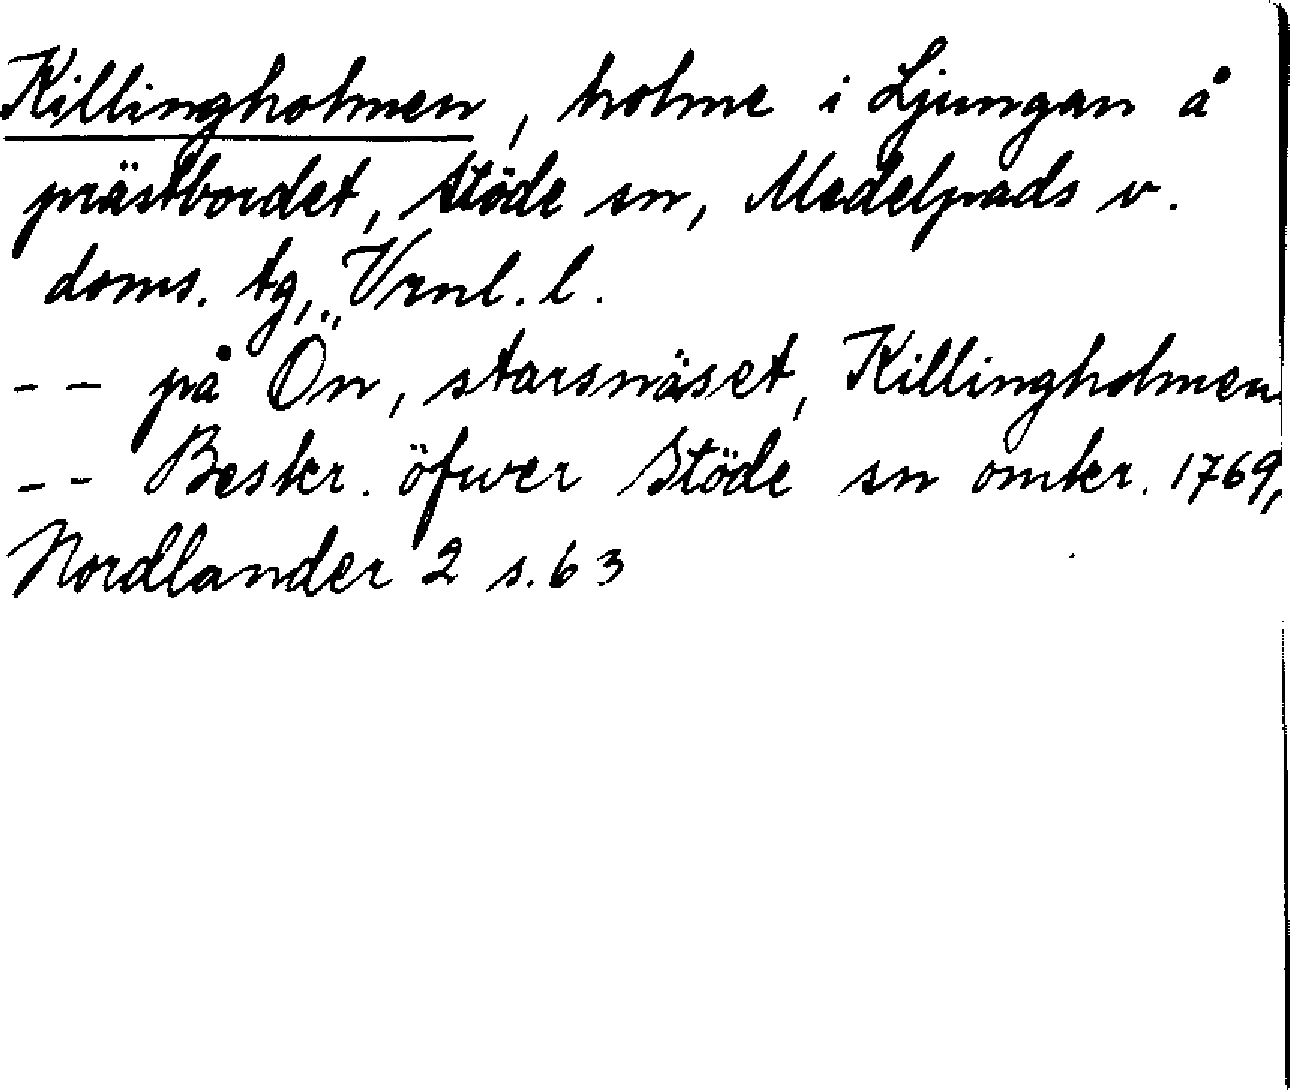 Killingholmen, holme i Ljungan å
prästbordet, Stöde sn, Medelpads v.
doms. tg, Vrnl. l.
-- på Ön, starsnäset, Killingholmen
-- Beskr. öfwer Stöde sn omkr. 1769,
Nordlander 2 s. 63